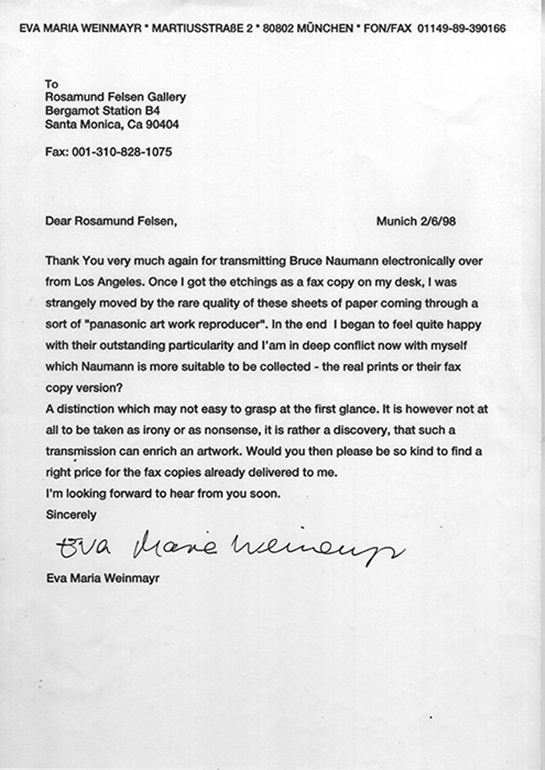 EVA MARIA WEINMAYR * MARTIUSSTRAßE 2 * 80802 MÜNCHEN * FON/FAX 01149-89-390166
To
Rosamund Felsen Gallery
Bergamot Station B4
Santa Monica, Ca 90404
Fax: 001-310-828-1075
Dear Rosamund Felsen, Munich 2/6/98
Thank You very much again for transmitting Bruce Naumann electronically over
from Los Angeles. Once I got the etchings as a fax copy on my desk, I was
strangely moved by the rare quality of these sheets of paper coming through a
sort of "panasonic art work reproducer". In the end I began to feel quite happy
with their outstanding particularity and I'am in deep conflict now with myself
which Naumann is more suitable to be collected - the real prints or their fax
copy version?
A distinction which may not easy to grasp at the first glance. It is however not at
all to be taken as irony or as nonsense, it is rather a discovery, that such a
transmission can enrich an artwork. Would you then please be so kind to find a
right price for the fax copies already delivered to me.
I'm looking forward to hear from you soon.
Sincerely
Eva Maria Weinmayr
Eva Maria Weinmayr